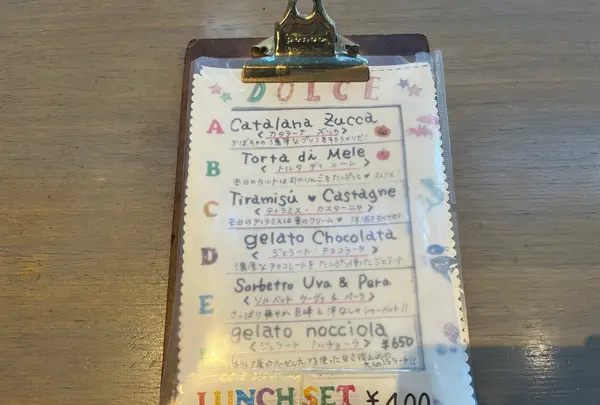 DOLCE
A Catalana Zucca
< カタラーナ ズッカ >
かぼちゃの濃厚なプリンをキャラメリゼ!
B Torta di Mele
< トルタ ディ メーレ >
本日のタルトは旬のりんごをたっぷりと
C Tiramisú ♥ Castagne
< ティラミス・カスターニャ >
本日のティラミスは栗のクリーム ♥
D gelato Chocolata
< ジェラート・チョコラータ >
濃厚なチョコレートをたっぷり使ったジェラート
E Sorbetto Uva & Pera
< ソルベット ウーヴァ & ペーラ >
さっぱり爽やか 巨峰と洋なしのシャーベット!!
gelato nocciola
< ジェラート ノッチョーラ > ¥650
産のヘーゼルナッツを使った甘さ控えめの
大人のジェラート!!
LUNCH SET ¥400